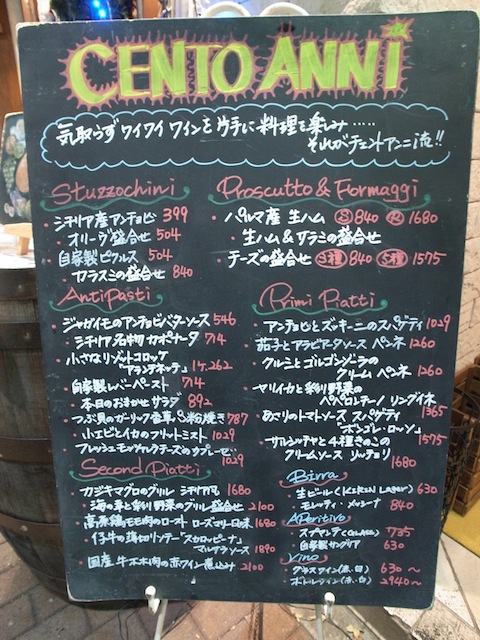 CENTO ANNI
気取らずワイワイワインを片手に料理を楽しみ‥‥‥
それがチェントアンニ流!!
Stuzzochini
・シチリア産アンチョビ 399
オリーヴ盛合せ 504
・自家製ピクルス 504
・カラスミの盛合せ 840
AntiPasti
・ジャガイモのアンチョビバターソース 546
・シチリア名物カポナータ 714
・小さなリゾットコロッケ
"アランチネッテ" 1ケ.262
・自家製レバーペースト 714
・本日のおまかせサラダ 892
・つぶ貝のガーリック香草パン粉焼き 787
・小エビとイカのフリットミスト 1029
・フレッシュモッツァレラチーズのカプレーゼ
1029
Second Piatti
・カジキマグロのグリル シチリア風 1680
・海の幸と彩り野菜のグリル盛合せ 2100
・高原鶏モモ肉のロースト ローズマリー風味 1680
・仔牛の薄切りソテー"スカロッピーナ"
マルサラソース 1890
・国産牛ホホ肉の赤ワイン煮込み 2100
Proscutto & Formaggi
・パルマ産 生ハム Ⓢ 840 Ⓡ 1680
・生ハム&サラミの盛合せ
・チーズの盛合せ 3種 840 5種 1575
Primi Piatti
・アンチョビとズッキーニのスパゲティ 1029
茄子とアラビアータソース ペンネ 1260
・クルミとゴルゴンゾーラの
クリーム ペンネ 1260
・ヤリイカと彩り野菜の
ペペロンチーノ リングイネ
・あさりのトマトソース スパゲティ 1365
"ボンゴレ・ロッソ"
・サルシッチャと4種きのこの 1575
クリームソース リッチョリ
1680
Birra
・生ビール(Kirin Lager) 630
・モレッティ・ 840
APeritivo
・スプマンテ(GLASS) 735
・自家製サングリア 630
Vino
・グラスワイン(赤、白) 630〜
・ボトルワイン(赤、白) 2940〜